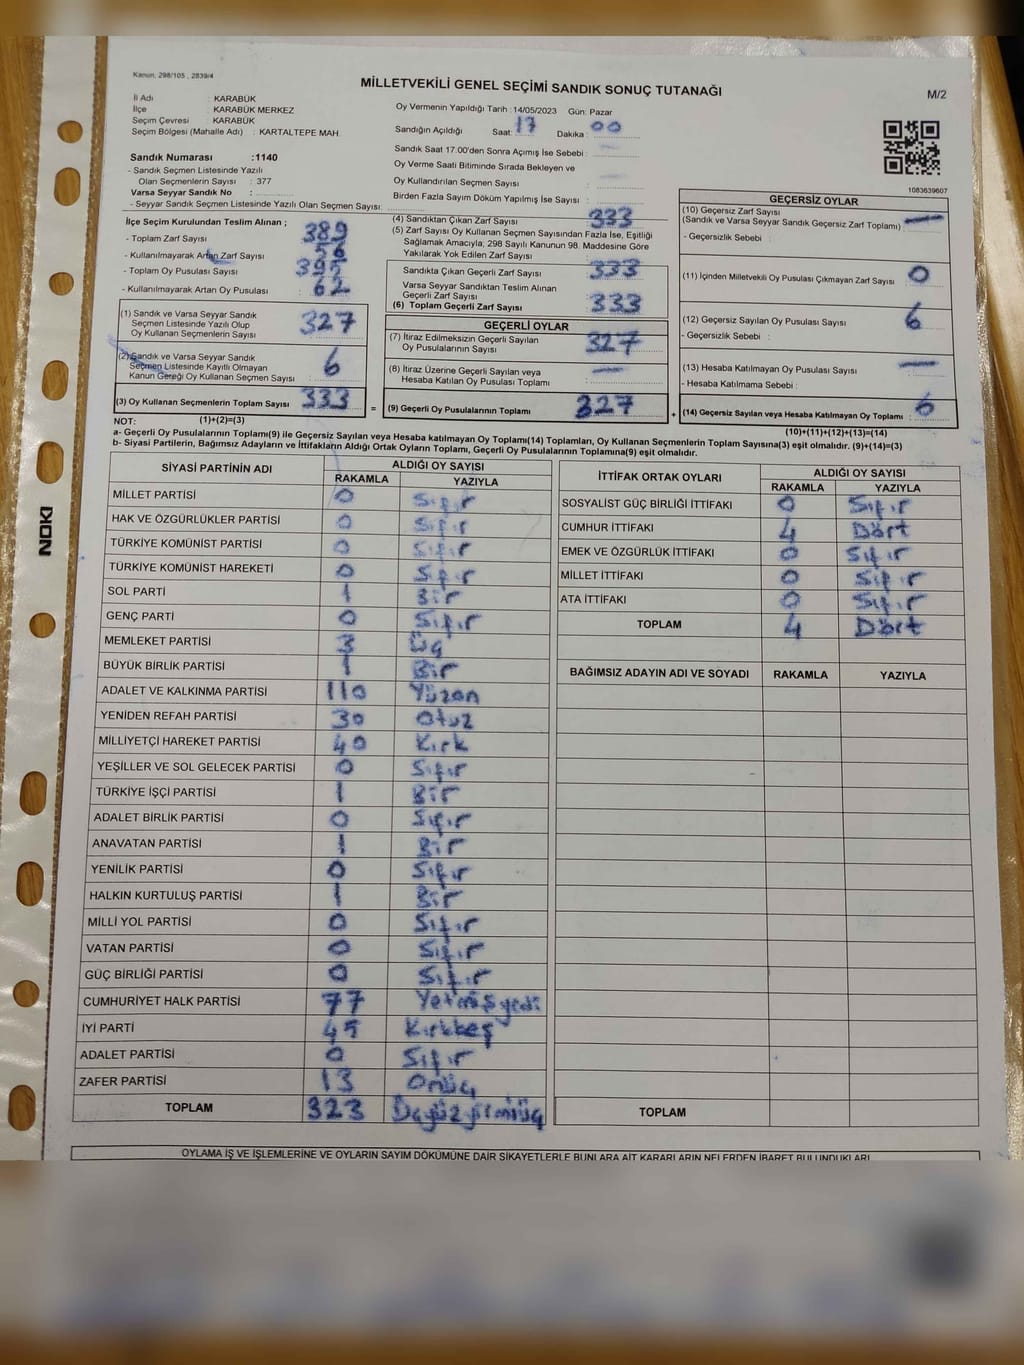 Kanun, 298/105 , 2839/4
MİLLETVEKİLİ GENEL SEÇİMİ SANDIK SONUÇ TUTANAĞI
M/2
İl Adı : KARABÜK
İlçe : KARABÜK MERKEZ
Seçim Çevresi : KARABÜK
Seçim Bölgesi (Mahalle Adı) : KARTALTEPE MAH.
Sandık Numarası :1140
- Sandık Seçmen Listesinde Yazılı
Olan Seçmenlerin Sayısı : 377
Varsa Seyyar Sandık No :
- Seyyar Sandık Seçmen Listesinde Yazılı Olan Seçmen Sayısı:
Oy Vermenin Yapıldığı Tarih :14/05/2023 Gün: Pazar
Sandığın Açıldığı Saat: 17 Dakika : 00
Sandık Saat 17.00'den Sonra Açımış İse Sebebi :
Oy Verme Saati Bitiminde Sırada Bekleyen ve
Oy Kullandırılan Seçmen Sayısı :
Birden Fazla Sayım Döküm Yapılmış İse Sayısı :
1083639607
İlçe Seçim Kurulundan Teslim Alınan ;
- Toplam Zarf Sayısı 389
- Kullanılmayarak Artan Zarf Sayısı 56
- Toplam Oy Pusulası Sayısı
- Kullanılmayarak Artan Oy Pusulası : 62
(1) Sandık ve Varsa Seyyar Sandık
Seçmen Listesinde Yazılı Olup
Oy Kullanan Seçmenlerin Sayısı 327
(2) Sandık ve Varsa Seyyar Sandık
Seçmen Listesinde Kayıtlı Olmayan
Kanun Gereği Oy Kullanan Seçmen Sayısı 6
(3) Oy Kullanan Seçmenlerin Toplam Sayısı 333 =
(4) Sandıktan Çıkan Zarf Sayısı 333
(5) Zarf Sayısı Oy Kullanan Seçmen Sayısından Fazla İse, Eşitliği
Sağlamak Amacıyla; 298 Sayılı Kanunun 98. Maddesine Göre
Yakılarak Yok Edilen Zarf Sayısı :
Sandıkta Çıkan Geçerli Zarf Sayısı : 333
Varsa Seyyar Sandıktan Teslim Alınan
Geçerli Zarf Sayısı :
(6) Toplam Geçerli Zarf Sayısı : 333
GEÇERLİ OYLAR
(7) İtiraz Edilmeksizin Geçerli Sayılan
Oy Pusulalarının Sayısı : 327
(8) İtiraz Üzerine Geçerli Sayılan veya
Hesaba Katılan Oy Pusulası Toplamı
(9) Geçerli Oy Pusulalarının Toplamı 327 +
GEÇERSİZ OYLAR
(10) Geçersiz Zarf Sayısı
(Sandık ve Varsa Seyyar Sandık Geçersiz Zarf Toplamı) :
- Geçersizlik Sebebi :
(11) İçinden Milletvekili Oy Pusulası Çıkmayan Zarf Sayısı : 0
(12) Geçersiz Sayılan Oy Pusulası Sayısı : 6
- Geçersizlik Sebebi :
(13) Hesaba Katılmayan Oy Pusulası Sayısı :
- Hesaba Katılmama Sebebi :
(14) Geçersiz Sayılan veya Hesaba Katılmayan Oy Toplamı : 6
NOT: (1)+(2)=(3) (10)+(11)+(12)+(13)=(14)
a- Geçerli Oy Pusulalarının Toplamı(9) ile Geçersiz Sayılan veya Hesaba katılmayan Oy Toplamı(14) Toplamları, Oy Kullanan Seçmenlerin Toplam Sayısına(3) eşit olmalıdır. (9)+(14)=(3)
b- Siyasi Partilerin, Bağımsız Adayların ve İttifakların Aldığı Ortak Oyların Toplamı, Geçerli Oy Pusulalarının Toplamına(9) eşit olmalıdır.
SİYASİ PARTİNİN ADI ALDIĞI OY SAYISI
RAKAMLA YAZIYLA
MİLLET PARTİSİ 0 Sıfır
HAK VE ÖZGÜRLÜKLER PARTİSİ 0 Sıfır
TÜRKİYE KOMÜNİST PARTİSİ 0 Sıfır
TÜRKİYE KOMÜNİST HAREKETİ 0 Sıfır
SOL PARTİ 1 Bir
GENÇ PARTİ 0 Sıfır
MEMLEKET PARTİSİ 3 Üç
BÜYÜK BİRLİK PARTİSİ 1 Bir
ADALET VE KALKINMA PARTİSİ 110 Yüzon
YENİDEN REFAH PARTİSİ 30 Otuz
MİLLİYETÇİ HAREKET PARTİSİ 40 Kırk
YEŞİLLER VE SOL GELECEK PARTİSİ 0 Sıfır
TÜRKİYE İŞÇİ PARTİSİ 1 Bir
ADALET BİRLİK PARTİSİ 0 Sıfır
ANAVATAN PARTİSİ 1 Bir
YENİLİK PARTİSİ 0 Sıfır
HALKIN KURTULUŞ PARTİSİ 1 Bir
MİLLİ YOL PARTİSİ 0 Sıfır
VATAN PARTİSİ 0 Sıfır
GÜÇ BİRLİĞİ PARTİSİ 0 Sıfır
CUMHURİYET HALK PARTİSİ 77 Yetmişyedi
İYİ PARTİ 45 Kırkbeş
ADALET PARTİSİ 0 Sıfır
ZAFER PARTİSİ 13 Onüç
TOPLAM 323 Üçyüzyirmiüç
İTTİFAK ORTAK OYLARI ALDIĞI OY SAYISI
RAKAMLA YAZIYLA
SOSYALİST GÜÇ BİRLİĞİ İTTİFAKI 0 Sıfır
CUMHUR İTTİFAKI 4 Dört
EMEK VE ÖZGÜRLÜK İTTİFAKI 0 Sıfır
MİLLET İTTİFAKI 0 Sıfır
ATA İTTİFAKI 0 Sıfır
TOPLAM 4 Dört
BAĞIMSIZ ADAYIN ADI VE SOYADI RAKAMLA YAZIYLA
TOPLAM
OYLAMA İŞ VE İŞLEMLERİNE VE OYLARIN SAYIM DÖKÜMÜNE DAİR ŞİKAYETLERLE BUNLARA AİT KARARLARIN NELERDEN İBARET BULUNDUKLARI
NOKI